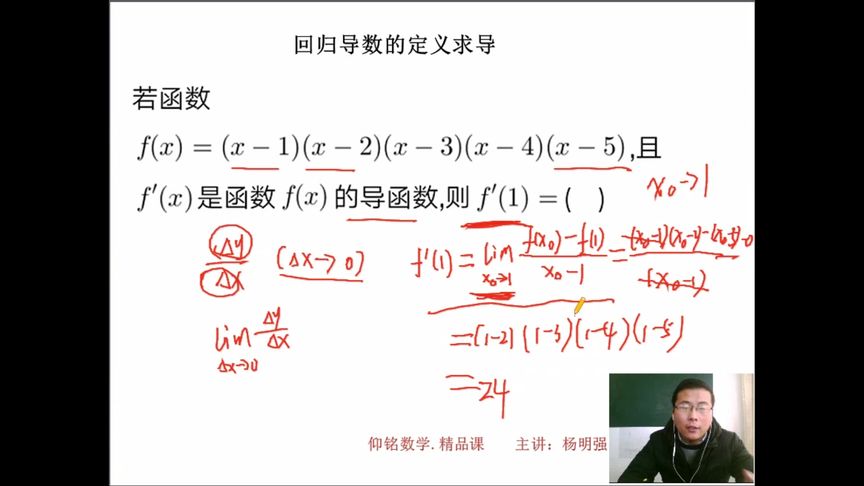 回归导数的定义求导
若函数
f(x) = (x − 1)(x − 2)(x − 3)(x − 4)(x − 5),且
f′(x)是函数 f(x) 的导函数,则 f′(1) = ( )
x₀→1
Δy/Δx (Δx→0)
f'(1) = lim x₀→1 f(x₀)−f(1)/x₀−1 =
lim Δx→0 Δy/Δx
=(1−2)(1−3)(1−4)(1−5)
=24
仰铭数学.精品课 主讲：杨明强